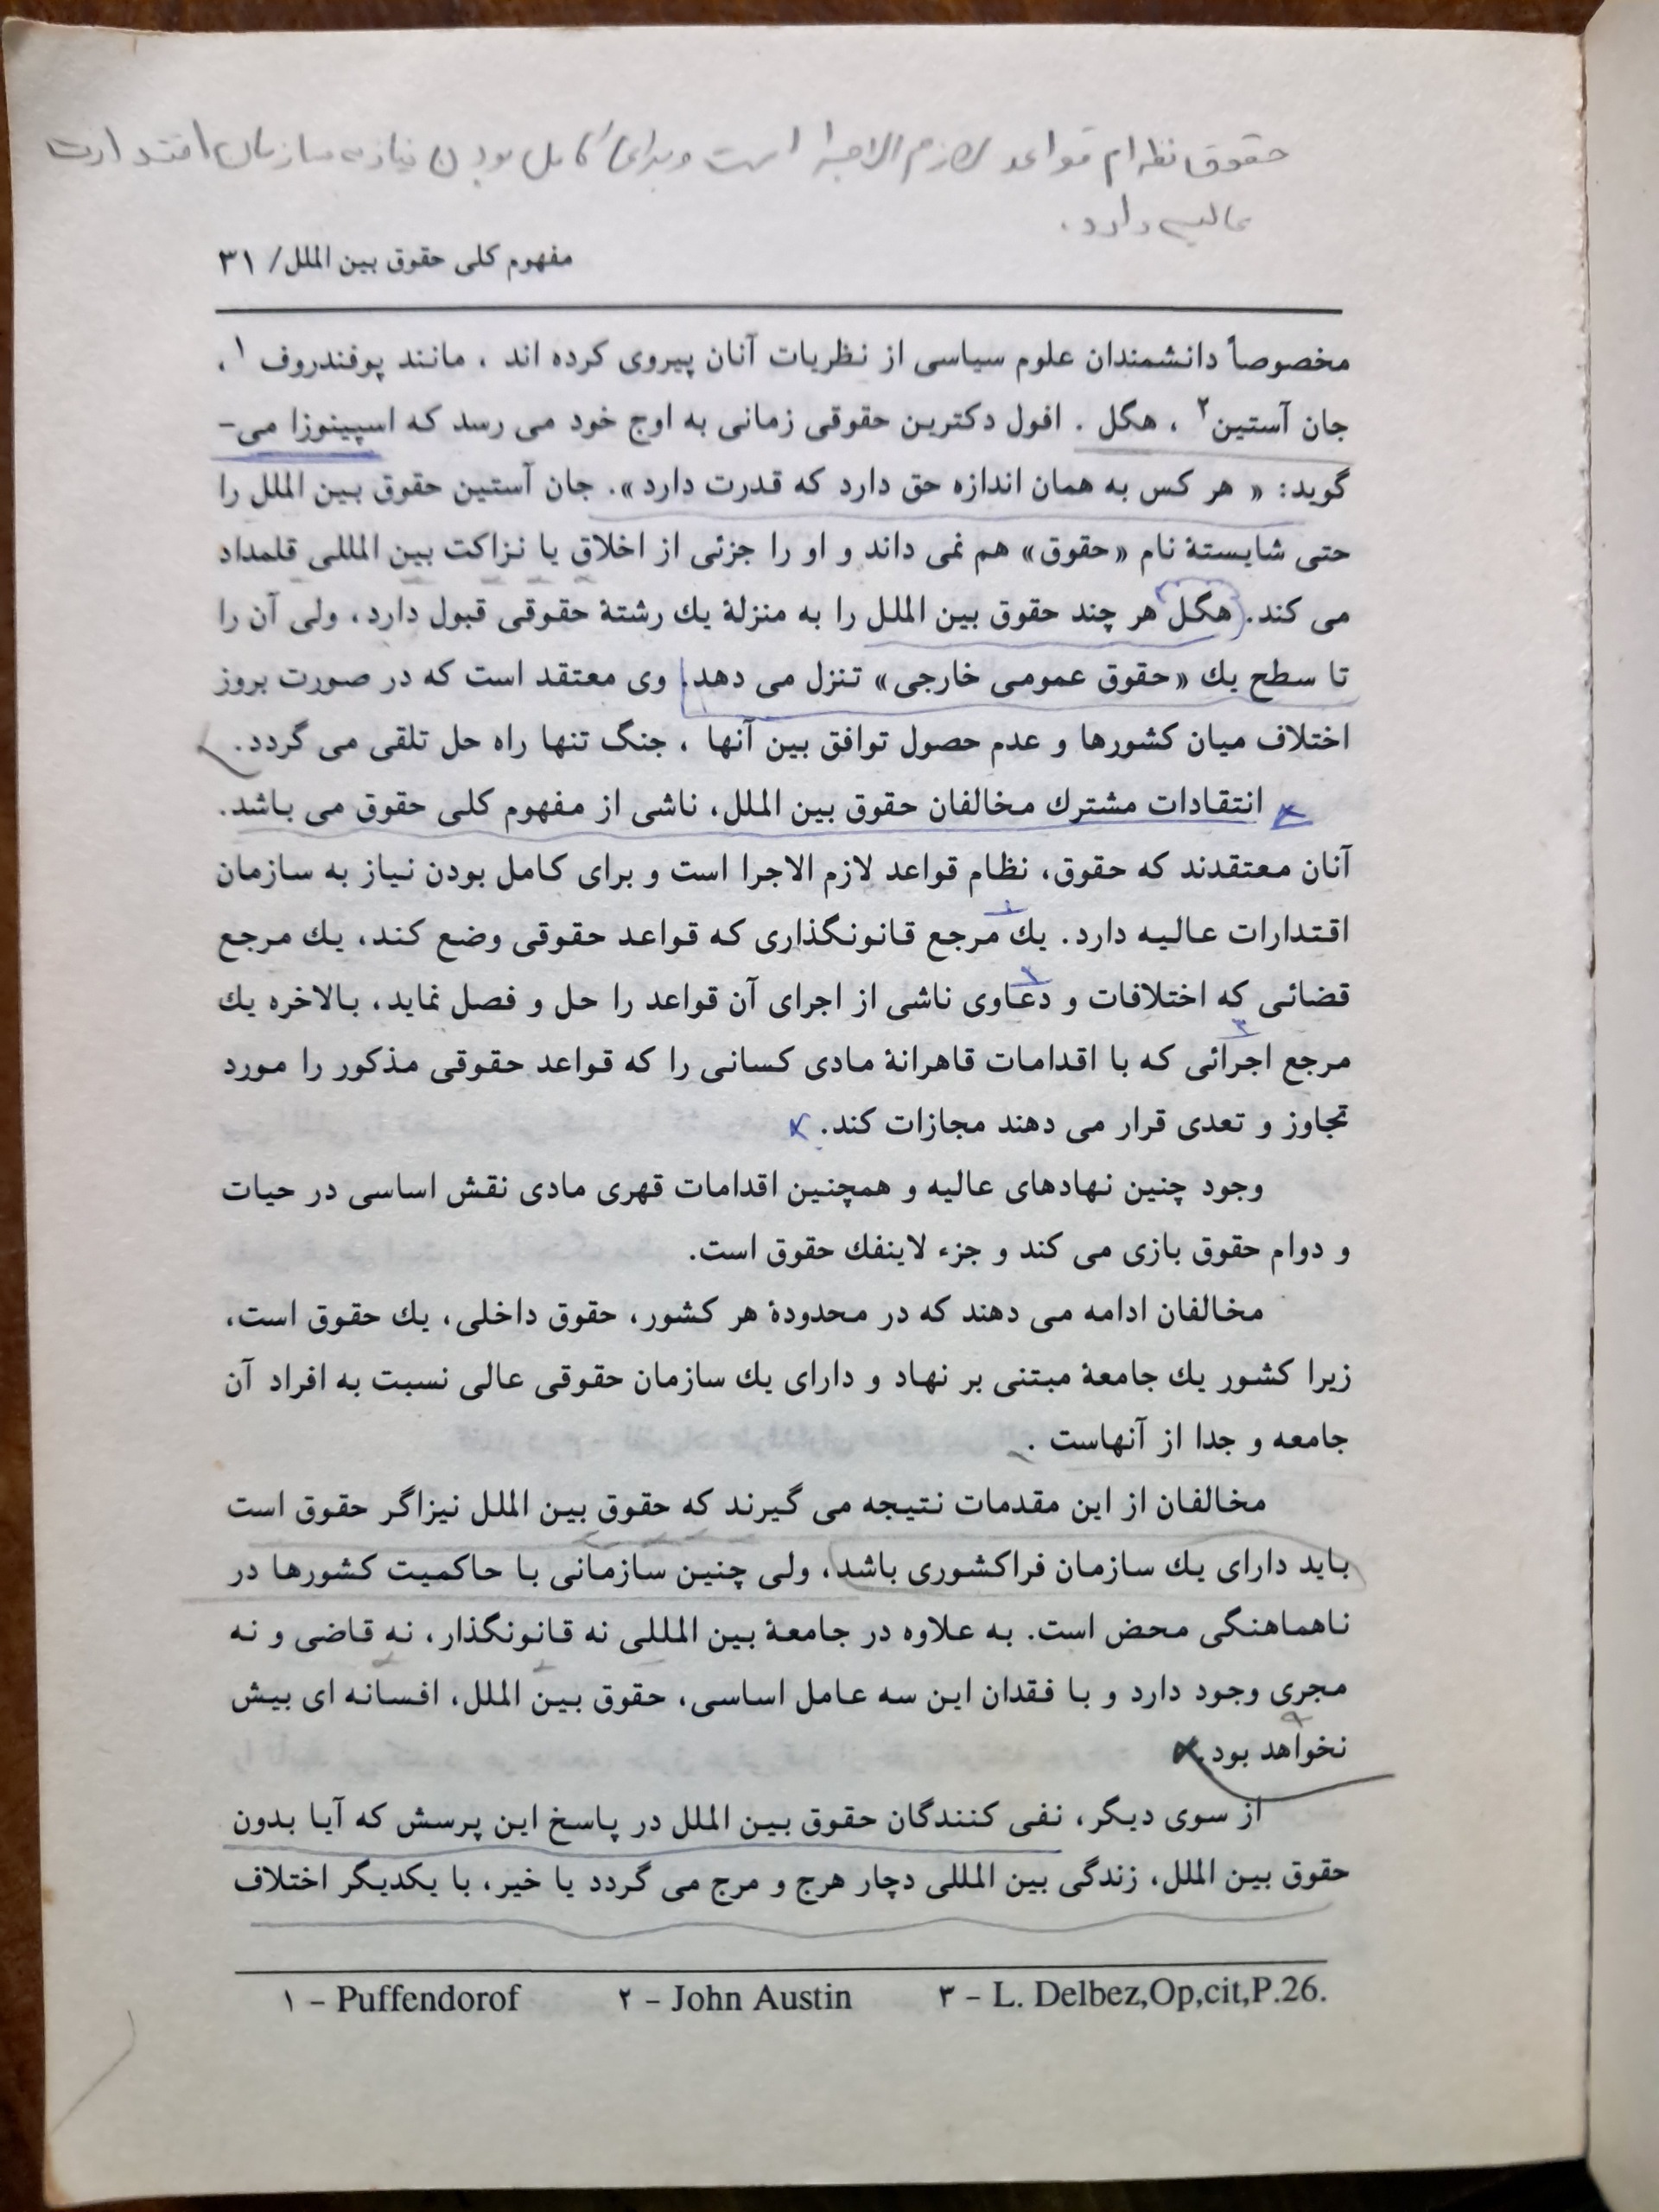 حقوق نظام قواعد لازم الاجرا است و برای کامل بودن نیاز به سازمان اقتدارات
عالیه دارد.
مفهوم کلی حقوق بین الملل/ ۳۱
مخصوصاً دانشمندان علوم سیاسی از نظریات آنان پیروی کرده اند ، مانند پوفندروف ۱ ،
جان آستین۲ ، هگل . افول دکترین حقوقی زمانی به اوج خود می رسد که اسپینوزا می-
گوید: « هر کس به همان اندازه حق دارد که قدرت دارد». جان آستین حقوق بین الملل را
حتی شایستۀ نام «حقوق» هم نمی داند و او را جزئی از اخلاق یا نزاکت بین المللی قلمداد
می کند. هگل هر چند حقوق بین الملل را به منزلۀ یك رشتۀ حقوقی قبول دارد، ولی آن را
تا سطح یك «حقوق عمومی خارجی» تنزل می دهد. وی معتقد است که در صورت بروز
اختلاف میان کشورها و عدم حصول توافق بین آنها ، جنگ تنها راه حل تلقی می گردد.
انتقادات مشترك مخالفان حقوق بین الملل، ناشی از مفهوم کلی حقوق می باشد.
آنان معتقدند که حقوق، نظام قواعد لازم الاجرا است و برای کامل بودن نیاز به سازمان
اقتدارات عالیه دارد. یك مرجع قانونگذاری که قواعد حقوقی وضع کند، یك مرجع
قضائی که اختلافات و دعاوی ناشی از اجرای آن قواعد را حل و فصل نماید، بالاخره یك
مرجع اجرائی که با اقدامات قاهرانۀ مادی کسانی را که قواعد حقوقی مذکور را مورد
تجاوز و تعدی قرار می دهند مجازات کند.
وجود چنین نهادهای عالیه و همچنین اقدامات قهری مادی نقش اساسی در حیات
و دوام حقوق بازی می کند و جزء لاینفك حقوق است.
مخالفان ادامه می دهند که در محدودۀ هر کشور، حقوق داخلی، یك حقوق است،
زیرا کشور یك جامعۀ مبتنی بر نهاد و دارای یك سازمان حقوقی عالی نسبت به افراد آن
جامعه و جدا از آنهاست .
مخالفان از این مقدمات نتیجه می گیرند که حقوق بین الملل نیزاگر حقوق است
باید دارای یك سازمان فراکشوری باشد، ولی چنین سازمانی با حاکمیت کشورها در
ناهماهنگی محض است. به علاوه در جامعۀ بین المللی نه قانونگذار، نه قاضی و نه
مجری وجود دارد و با فقدان این سه عامل اساسی، حقوق بین الملل، افسانه ای بیش
نخواهد بود.
از سوی دیگر، نفی کنندگان حقوق بین الملل در پاسخ این پرسش که آیا بدون
حقوق بین الملل، زندگی بین المللی دچار هرج و مرج می گردد یا خیر، با یکدیگر اختلاف
۱ – Puffendorof ۲ – John Austin ۳ – L. Delbez,Op,cit,P.26.